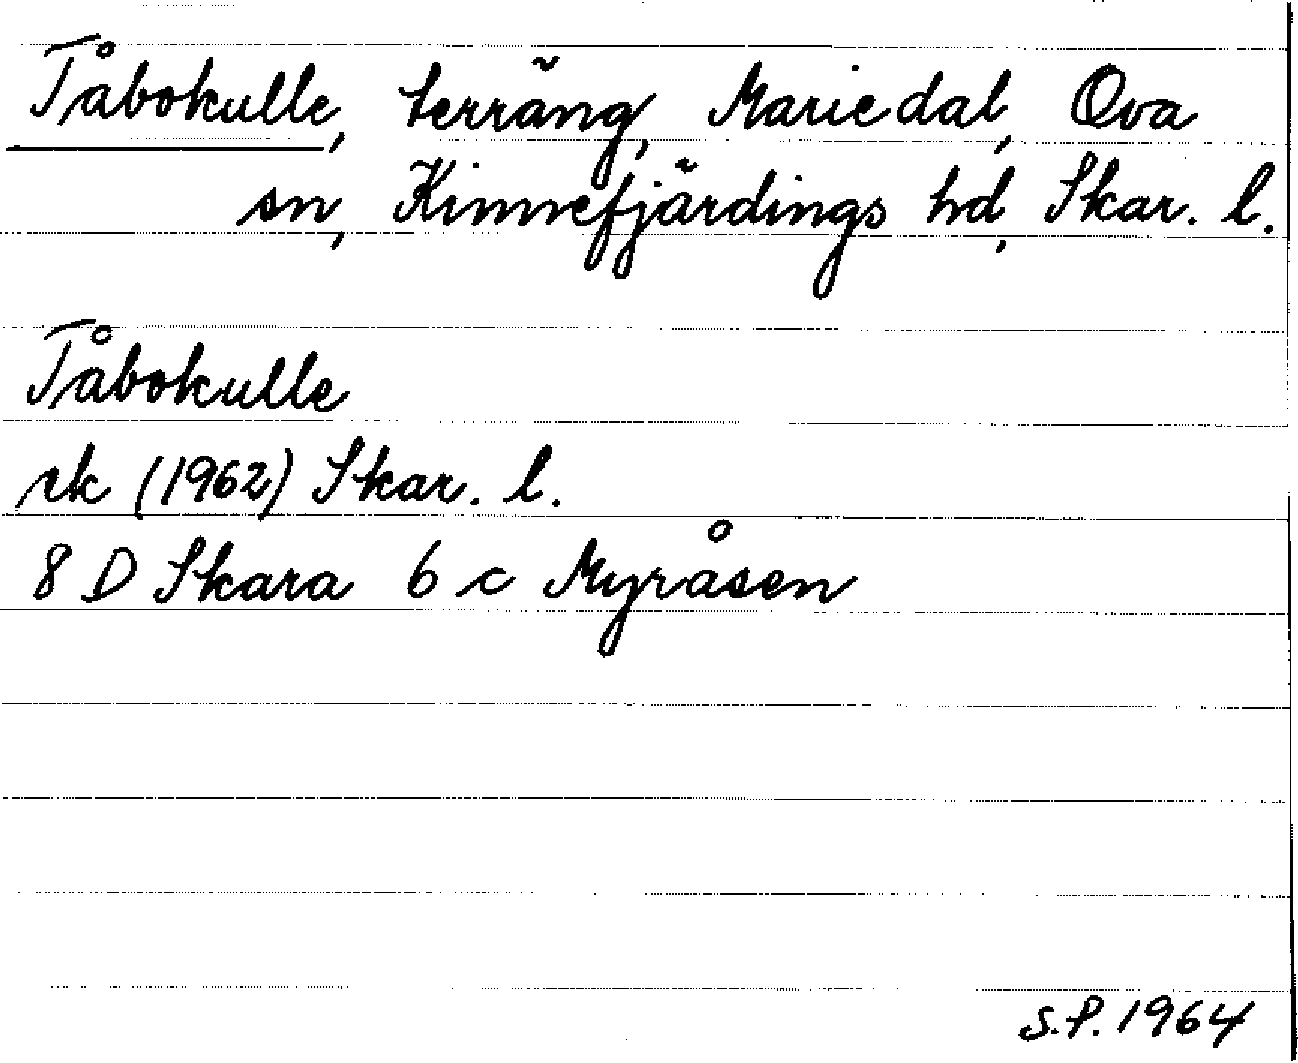 Tåbokulle, terräng, Mariedal, Ova
sn, Kinnefjärdings hd, Skar. l.
Tåbokulle
rk (1962) Skar. l.
8 D Skara 6 c Myråsen
S.P. 1964